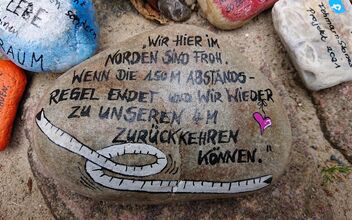 LEBE
RAUM
„WIR HIER IM
NORDEN SIND FROH,
WENN DIE 1,50M ABSTANDS-
REGEL ENDET UND WIR WIEDER
ZU UNSEREN 4M
ZURÜCKKEHREN
KÖNNEN."